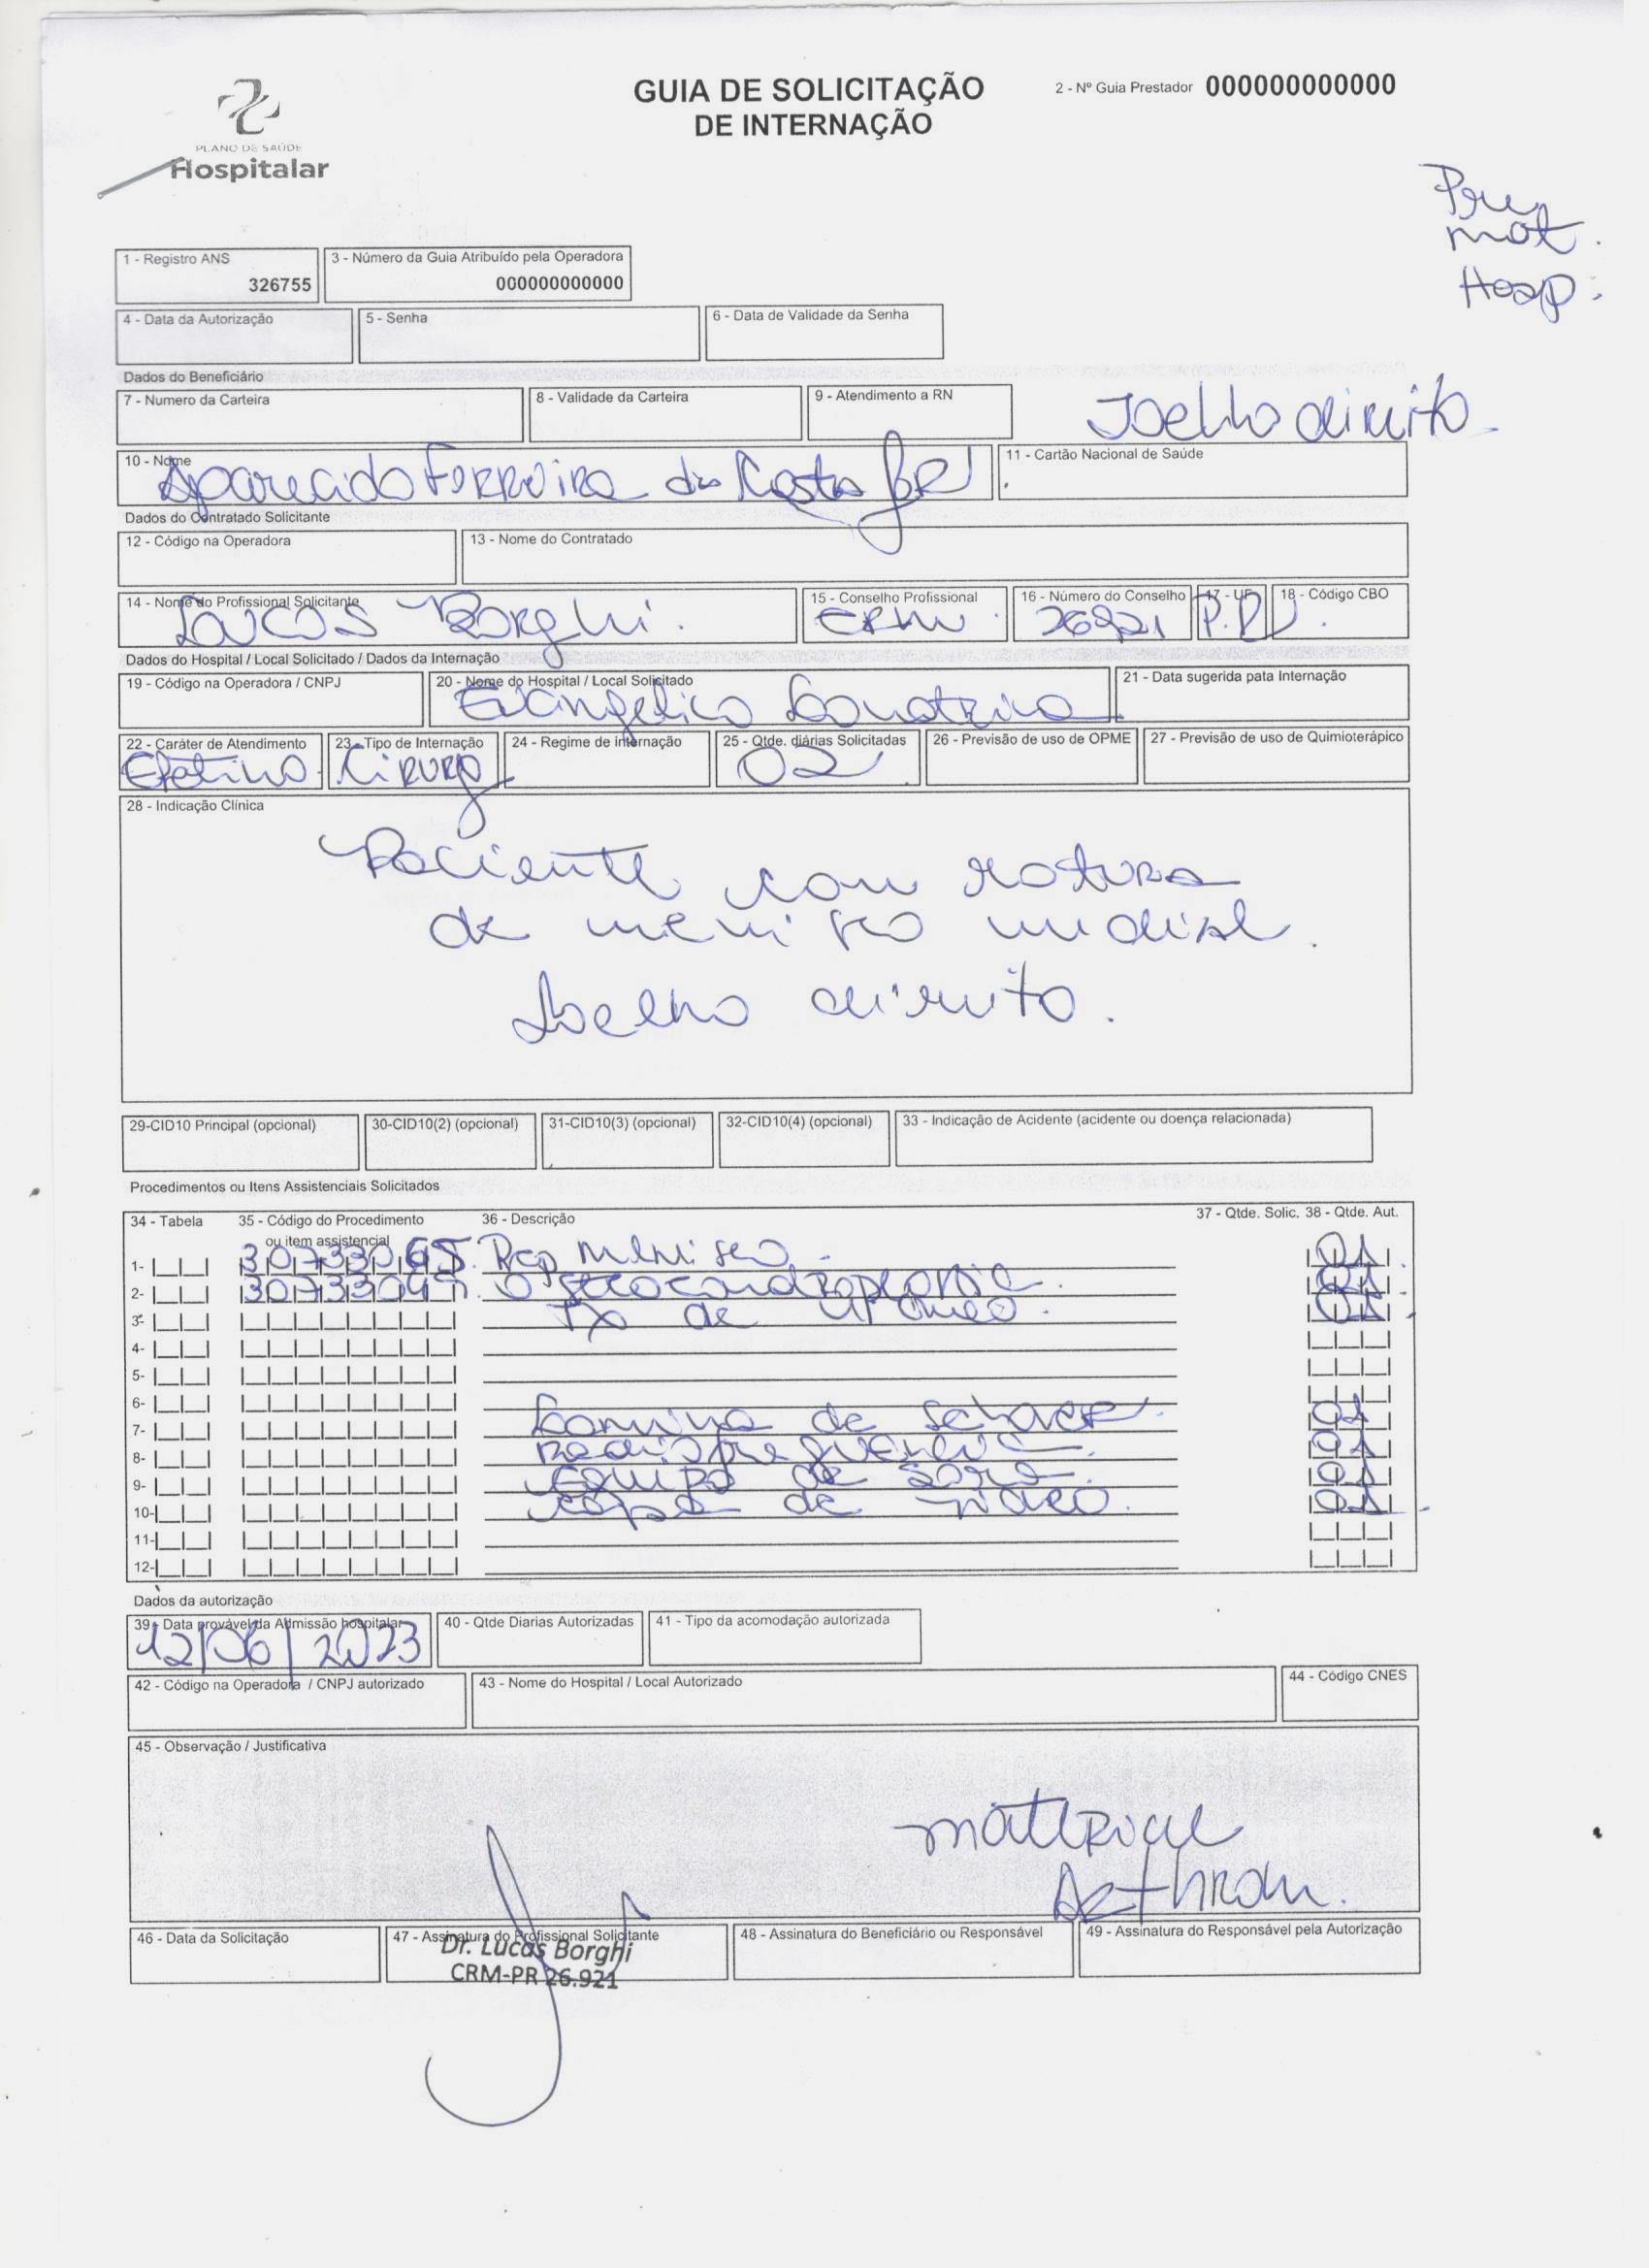 GUIA DE SOLICITAÇÃO
DE INTERNAÇÃO
2 - Nº Guia Prestador 000000000000
PLANO DE SAÚDE
Hospitalar
mat.
Hosp:
1 - Registro ANS
326755
3 - Número da Guia Atribuído pela Operadora
000000000000
4 - Data da Autorização
5 - Senha
6 - Data de Validade da Senha
Dados do Beneficiário
7 - Numero da Carteira
8 - Validade da Carteira
9 - Atendimento a RN
Joelho direito.
10 - Nome
Aparecido Ferreira da Costa
11 - Cartão Nacional de Saúde
Dados do Contratado Solicitante
12 - Código na Operadora
13 - Nome do Contratado
14 - Nome do Profissional Solicitante
Lucas Borghi.
15 - Conselho Profissional
CRM
16 - Número do Conselho
26921
17 - UF
P.R
18 - Código CBO
Dados do Hospital / Local Solicitado / Dados da Internação
19 - Código na Operadora / CNPJ
20 - Nome do Hospital / Local Solicitado
Evangelico Londrina
21 - Data sugerida pata Internação
22 - Caráter de Atendimento
Eletivo
23 - Tipo de Internação
Cirurg
24 - Regime de internação
25 - Qtde. diárias Solicitadas
02
26 - Previsão de uso de OPME
27 - Previsão de uso de Quimioterápico
28 - Indicação Clínica
Paciente com rotura
de menisco medial.
Joelho direito.
29-CID10 Principal (opcional)
30-CID10(2) (opcional)
31-CID10(3) (opcional)
32-CID10(4) (opcional)
33 - Indicação de Acidente (acidente ou doença relacionada)
Procedimentos ou Itens Assistenciais Solicitados
34 - Tabela
35 - Código do Procedimento
ou item assistencial
36 - Descrição
37 - Qtde. Solic. 38 - Qtde. Aut.
1- 30733065. Rep menisco. 01
2- Osteocondroplastia. 01
3- Tx de video. 01
4-
5-
6-
7- Lamina de Schaver. 01
8- Radiofrequencia. 01
9- Equipo de soro. 01
10- capa de video. 01
11-
12-
Dados da autorização
39 - Data provável da Admissão hospitalar
12/06/2023
40 - Qtde Diarias Autorizadas
41 - Tipo da acomodação autorizada
42 - Código na Operadora / CNPJ autorizado
43 - Nome do Hospital / Local Autorizado
44 - Código CNES
45 - Observação / Justificativa
material
Arthrom.
46 - Data da Solicitação
47 - Assinatura do Profissional Solicitante
Dr. Lucas Borghi
CRM-PR 26.921
48 - Assinatura do Beneficiário ou Responsável
49 - Assinatura do Responsável pela Autorização